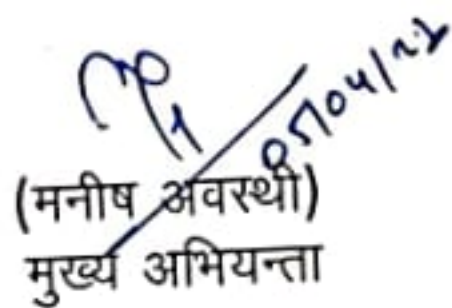 05/04/22
(मनीष अवस्थी)
मुख्य अभियन्ता